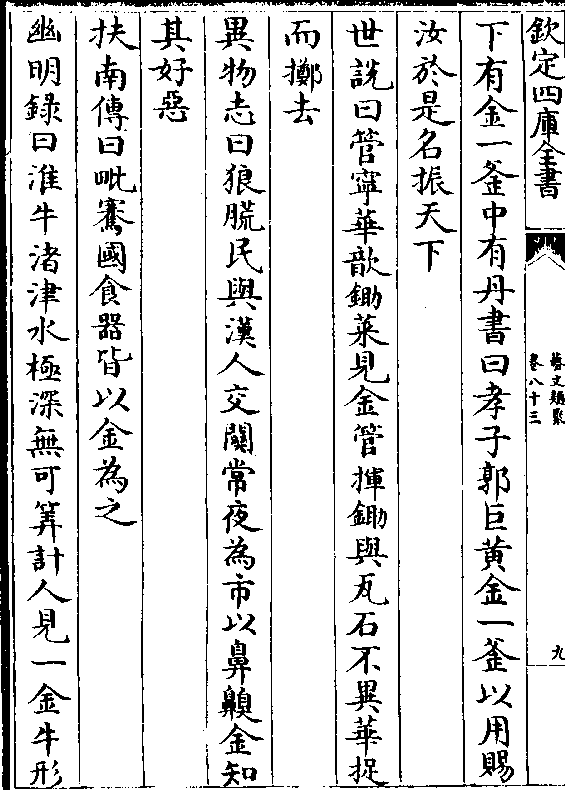 欽定四庫全書
藝文類聚
卷八十三
九
下有金一釜中有丹書曰孝子郭巨黃金一釜以用賜
汝於是名振天下
世說曰管寧華歆鋤菜見金管揮鋤與瓦石不異華捉
而擲去
異物志曰狼䏧民與漢人交關常夜為市以鼻齅金知
其好惡
扶南傳曰毗騫國食器皆以金為之
幽明錄曰淮牛渚津水極深無可筭計人見一金牛形